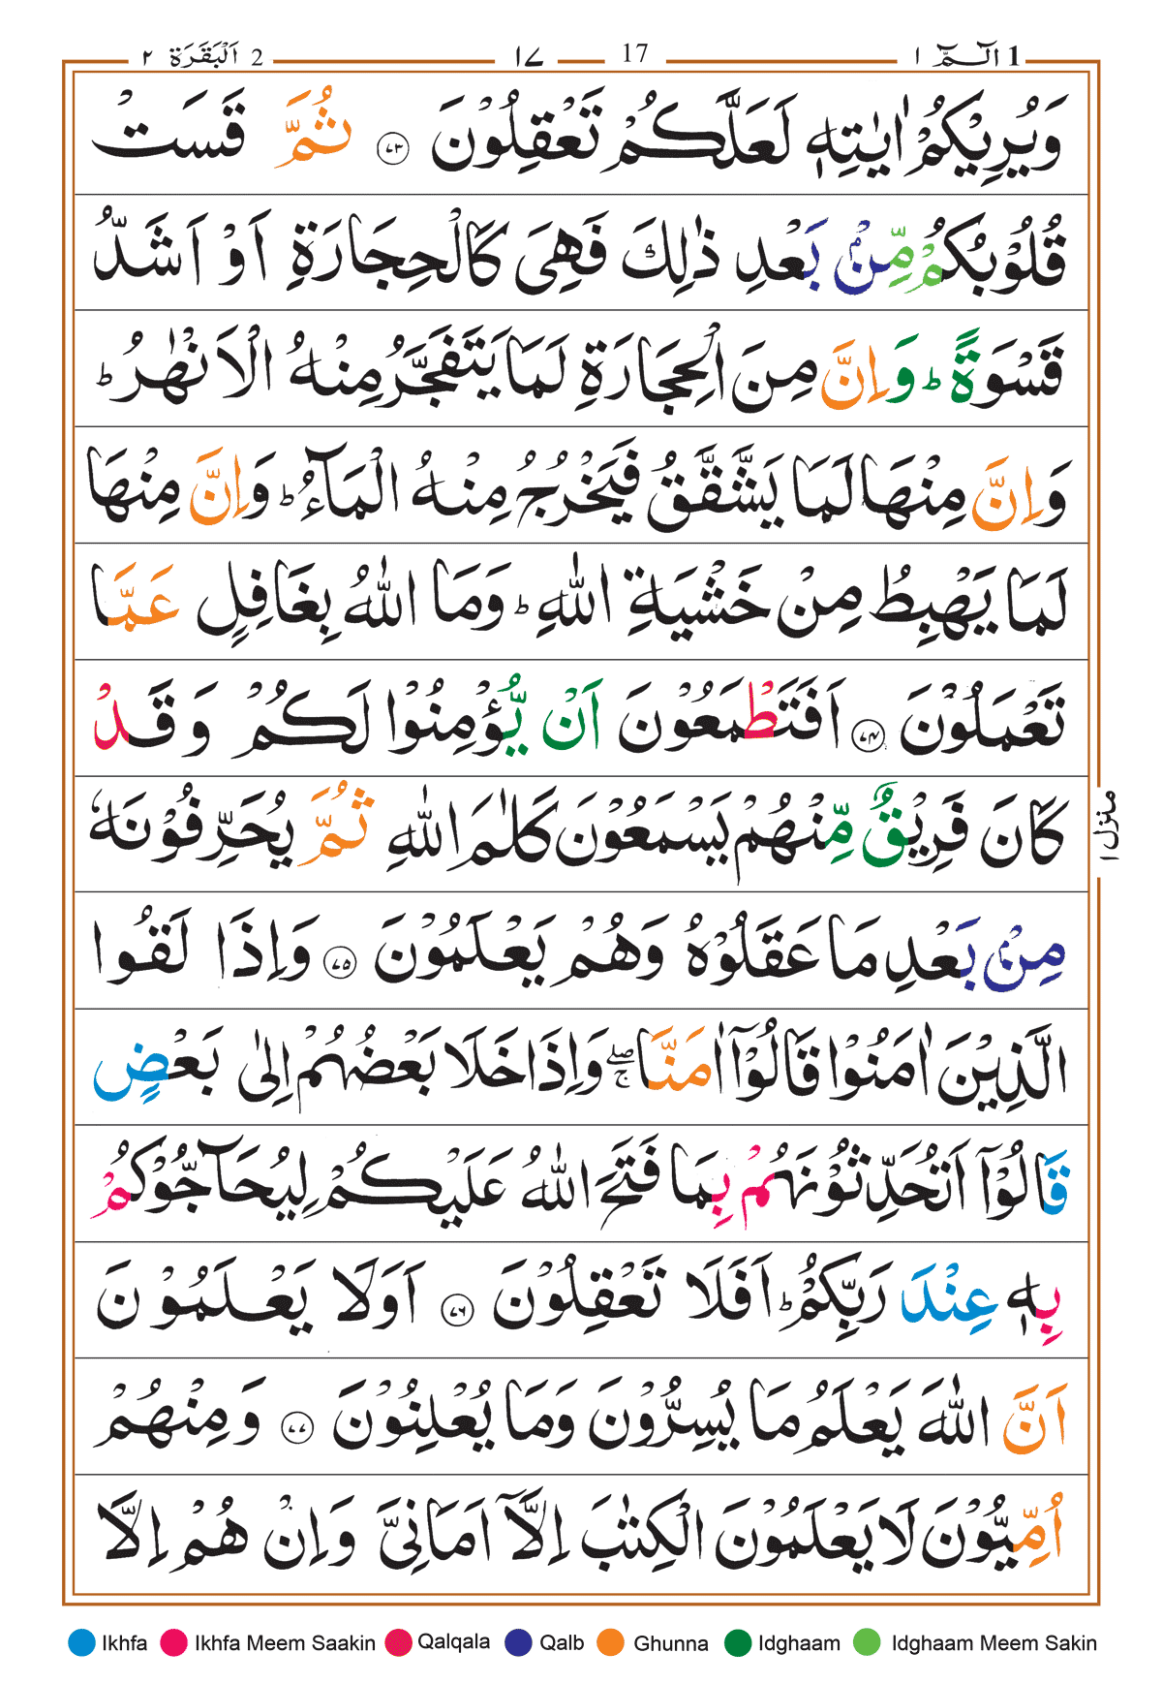 2 اَلْبَقَرَة ٢ ١٧ 17 1 الٓـمّٓ ١
وَيُرِيْكُمْ اٰيٰتِهٖ لَعَلَّكُمْ تَعْقِلُوْنَ ﴿۷۳﴾ ثُمَّ قَسَتْ
قُلُوْبُكُمْ مِّنْۢ بَعْدِ ذٰلِكَ فَهِىَ كَالْحِجَارَةِ اَوْ اَشَدُّ
قَسْوَةً ؕ وَاِنَّ مِنَ الْحِجَارَةِ لَمَا يَتَفَجَّرُ مِنْهُ الْاَنْهٰرُ ؕ
وَاِنَّ مِنْهَا لَمَا يَشَّقَّقُ فَيَخْرُجُ مِنْهُ الْمَآءُ ؕ وَاِنَّ مِنْهَا
لَمَا يَهْبِطُ مِنْ خَشْيَةِ اللّٰهِ ؕ وَمَا اللّٰهُ بِغَافِلٍ عَمَّا
تَعْمَلُوْنَ ﴿۷۴﴾ اَفَتَطْمَعُوْنَ اَنْ يُّؤْمِنُوْا لَكُمْ وَقَدْ
كَانَ فَرِيْقٌ مِّنْهُمْ يَسْمَعُوْنَ كَلٰمَ اللّٰهِ ثُمَّ يُحَرِّفُوْنَهٗ
مِنْۢ بَعْدِ مَا عَقَلُوْهُ وَهُمْ يَعْلَمُوْنَ ﴿۷۵﴾ وَاِذَا لَقُوا
الَّذِيْنَ اٰمَنُوْا قَالُوْۤا اٰمَنَّا ۖۚ وَاِذَا خَلَا بَعْضُهُمْ اِلٰى بَعْضٍ
قَالُوْۤا اَتُحَدِّثُوْنَهُمْ بِمَا فَتَحَ اللّٰهُ عَلَيْكُمْ لِيُحَآجُّوْكُمْ
بِهٖ عِنْدَ رَبِّكُمْ ؕ اَفَلَا تَعْقِلُوْنَ ﴿۷۶﴾ اَوَلَا يَعْلَمُوْنَ
اَنَّ اللّٰهَ يَعْلَمُ مَا يُسِرُّوْنَ وَمَا يُعْلِنُوْنَ ﴿۷۷﴾ وَمِنْهُمْ
اُمِّيُّوْنَ لَا يَعْلَمُوْنَ الْكِتٰبَ اِلَّاۤ اَمَانِىَّ وَاِنْ هُمْ اِلَّا
منزل ١
Ikhfa Ikhfa Meem Saakin Qalqala Qalb Ghunna Idghaam Idghaam Meem Sakin